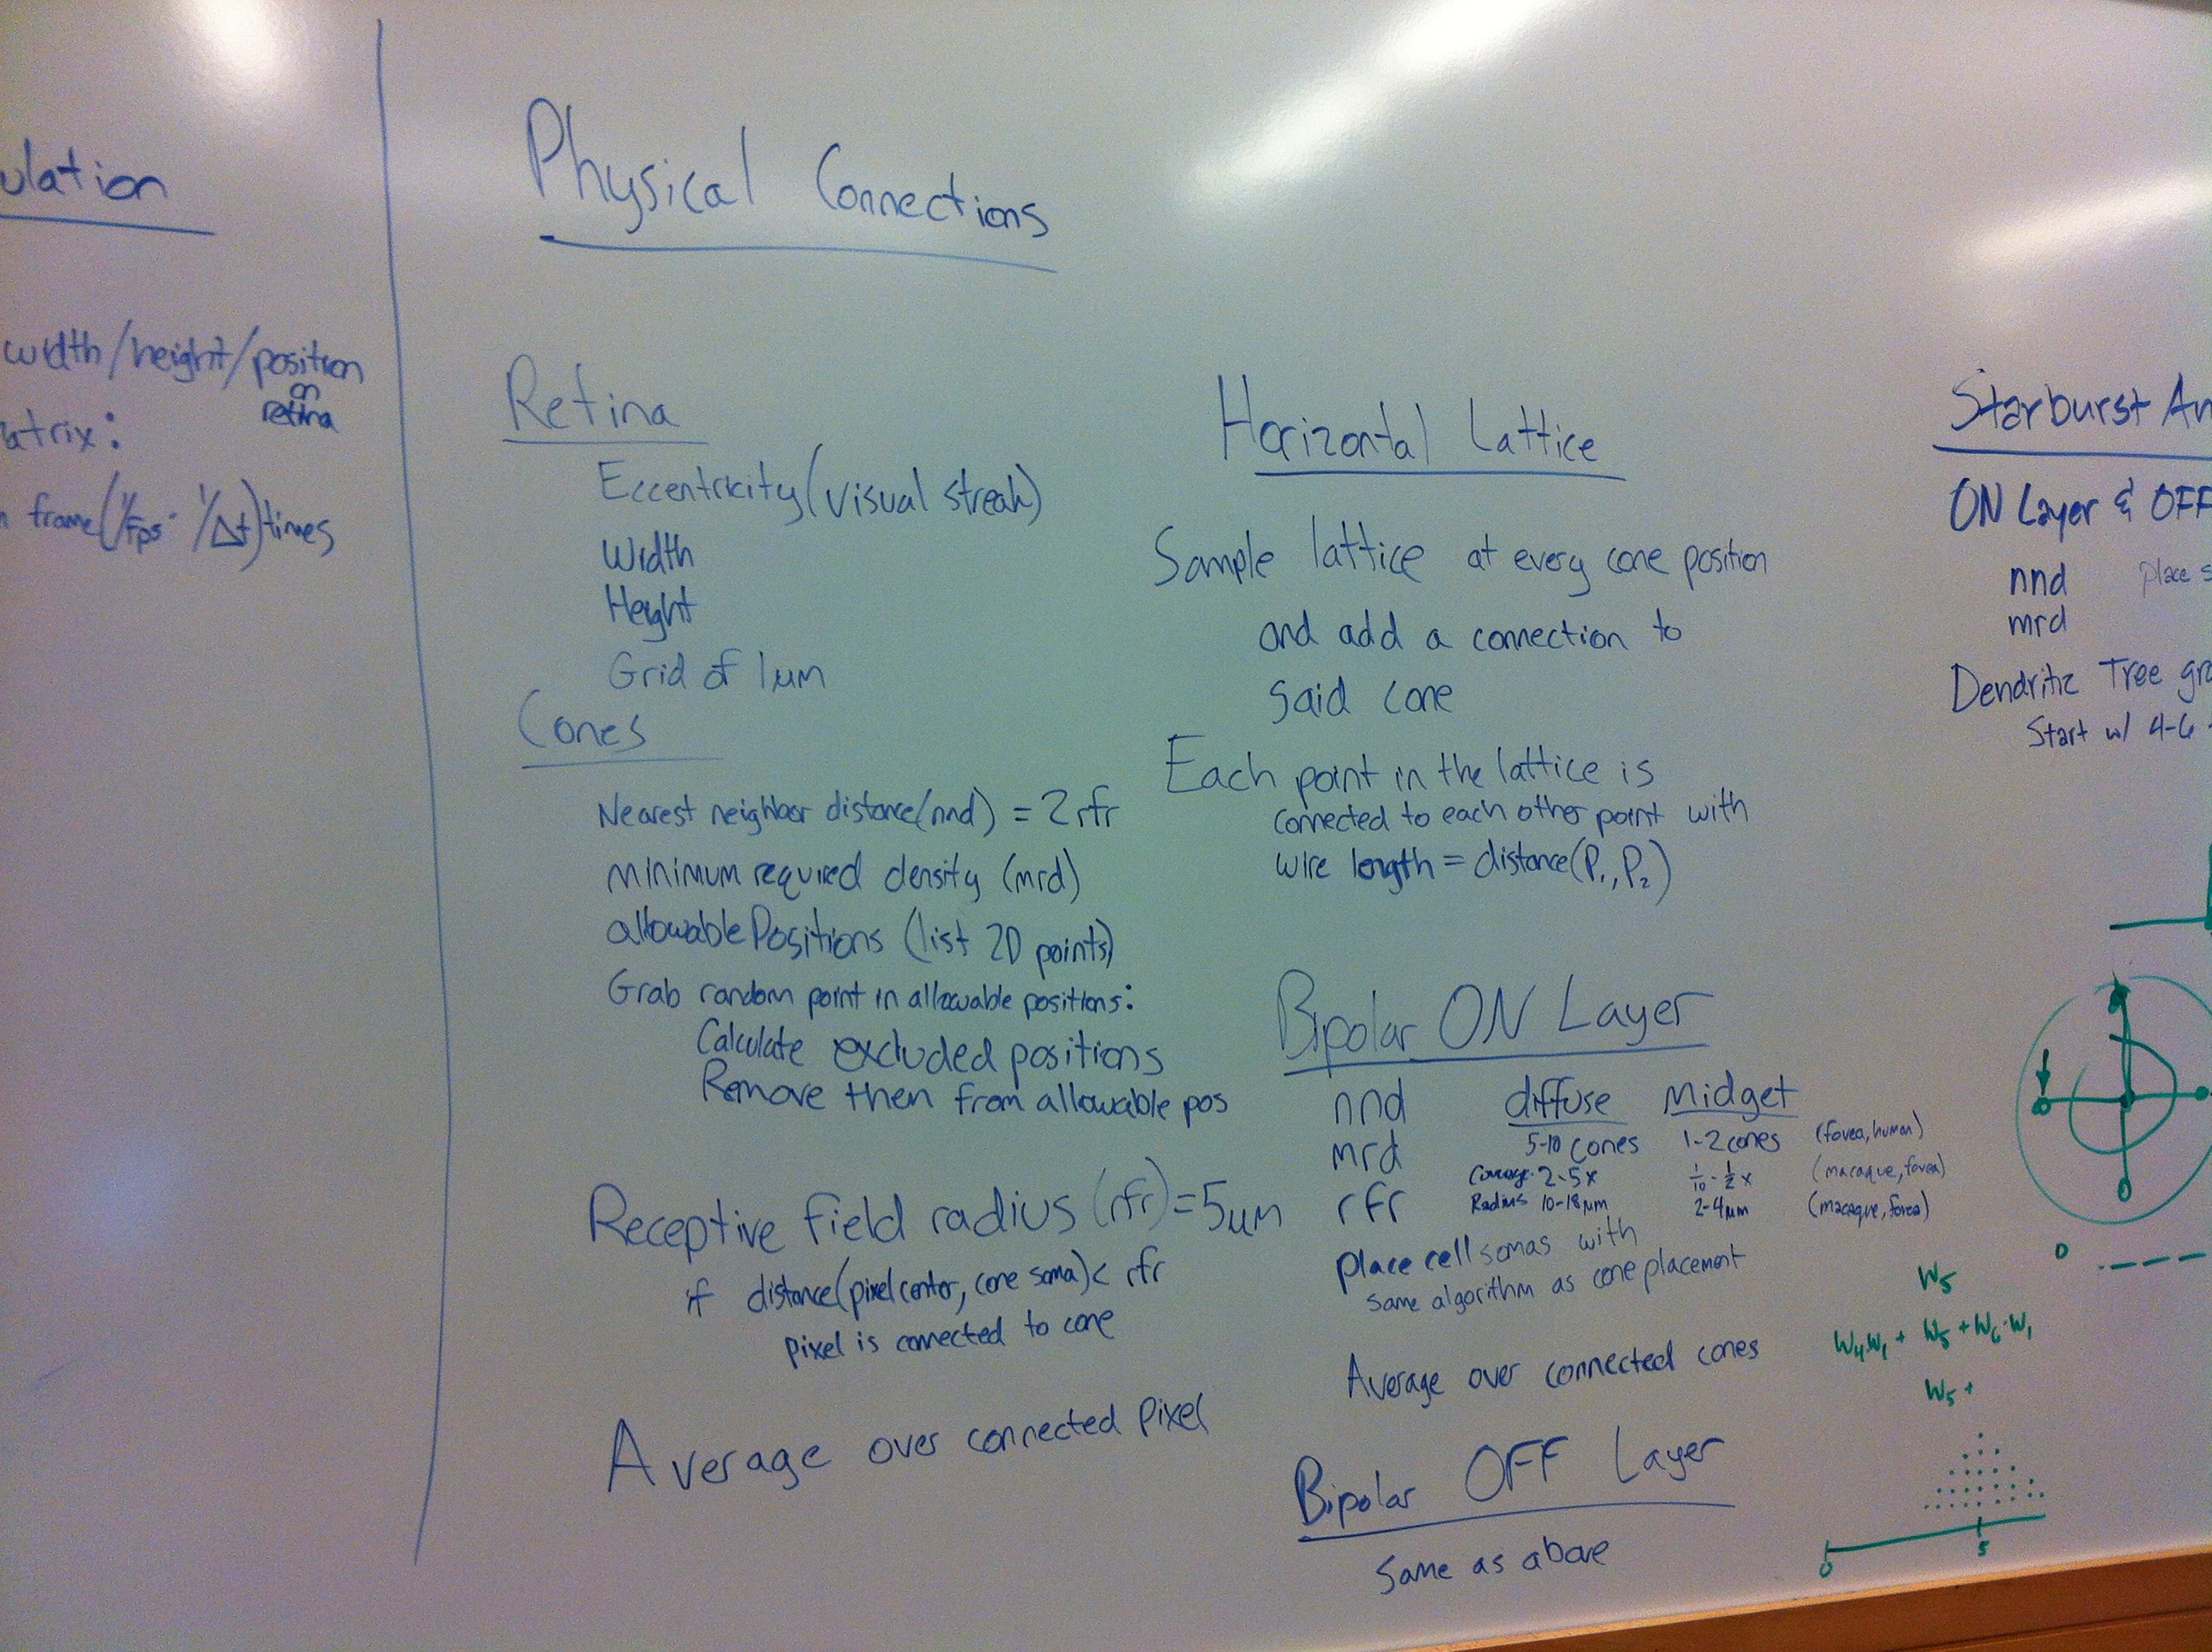 ulation
width/height/position
on
retina
atrix:
frame(1/fps · 1/Δt)times
Physical Connections
Retina
Eccentricity(visual streak)
Width
Height
Grid of 1µm
Cones
Nearest neighbor distance(nnd) = 2rfr
minimum required density (mrd)
allowablePositions (list 2D points)
Grab random point in allowable positions:
Calculate excluded positions
Remove then from allowable pos
Receptive field radius (rfr)=5µm
if distance(pixel center, cone soma)< rfr
pixel is connected to cone
Average over connected pixel
Horizontal Lattice
Sample lattice at every cone position
and add a connection to
said cone
Each point in the lattice is
connected to each other point with
wire length = distance(P₁,P₂)
Bipolar ON Layer
nnd diffuse Midget
mrd 5-10 cones 1-2 cones (fovea, human)
Coverage 2-5x 1/10-1/2x (macaque, fovea)
rfr Radius 10-18µm 2-4µm (macaque, fovea)
place cell somas with
same algorithm as cone placement
Average over connected cones
Bipolar OFF Layer
Same as above
Starburst Am
ON Layer & OFF
nnd place s
mrd
Dendritic Tree gro
Start w/ 4-6
W₅
W₄·W₁ + W₅ + W₆·W₁
W₅ +
0 5